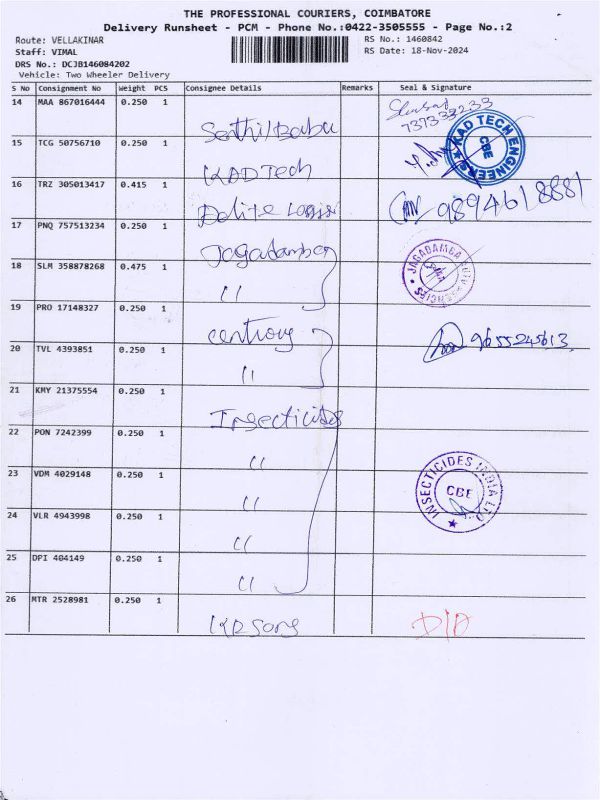 THE PROFESSIONAL COURIERS, COIMBATORE
Delivery Runsheet - PCM - Phone No.:0422-3505555 - Page No.:2
Route: VELLAKINAR
RS No.: 1460842
Staff: VIMAL
RS Date: 18-Nov-2024
DRS No.: DCJB146084202
Vehicle: Two Wheeler Delivery
S No Consignment No Weight PCS Consignee Details Remarks Seal & Signature
14 MAA 867016444 0.250 1 Senthil Babu
7373333233
15 TCG 50756710 0.250 1 KAD Tech
KAD TECH ENGINEERS CBE
16 TRZ 305013417 0.415 1 9894618881
17 PNQ 757513234 0.250 1 Jagadamben
JAGADAMBA
18 SLM 358878268 0.475 1 "
19 PRO 17148327 0.250 1 century 9655245613
20 TVL 4393851 0.250 1 "
21 KMY 21375554 0.250 1 Insecticides
22 PON 7242399 0.250 1 "
INSECTICIDES INDIA LTD CBE
23 VDM 4029148 0.250 1 "
24 VLR 4943998 0.250 1 "
25 DPI 404149 0.250 1 "
26 MTR 2528981 0.250 1 KR Sons